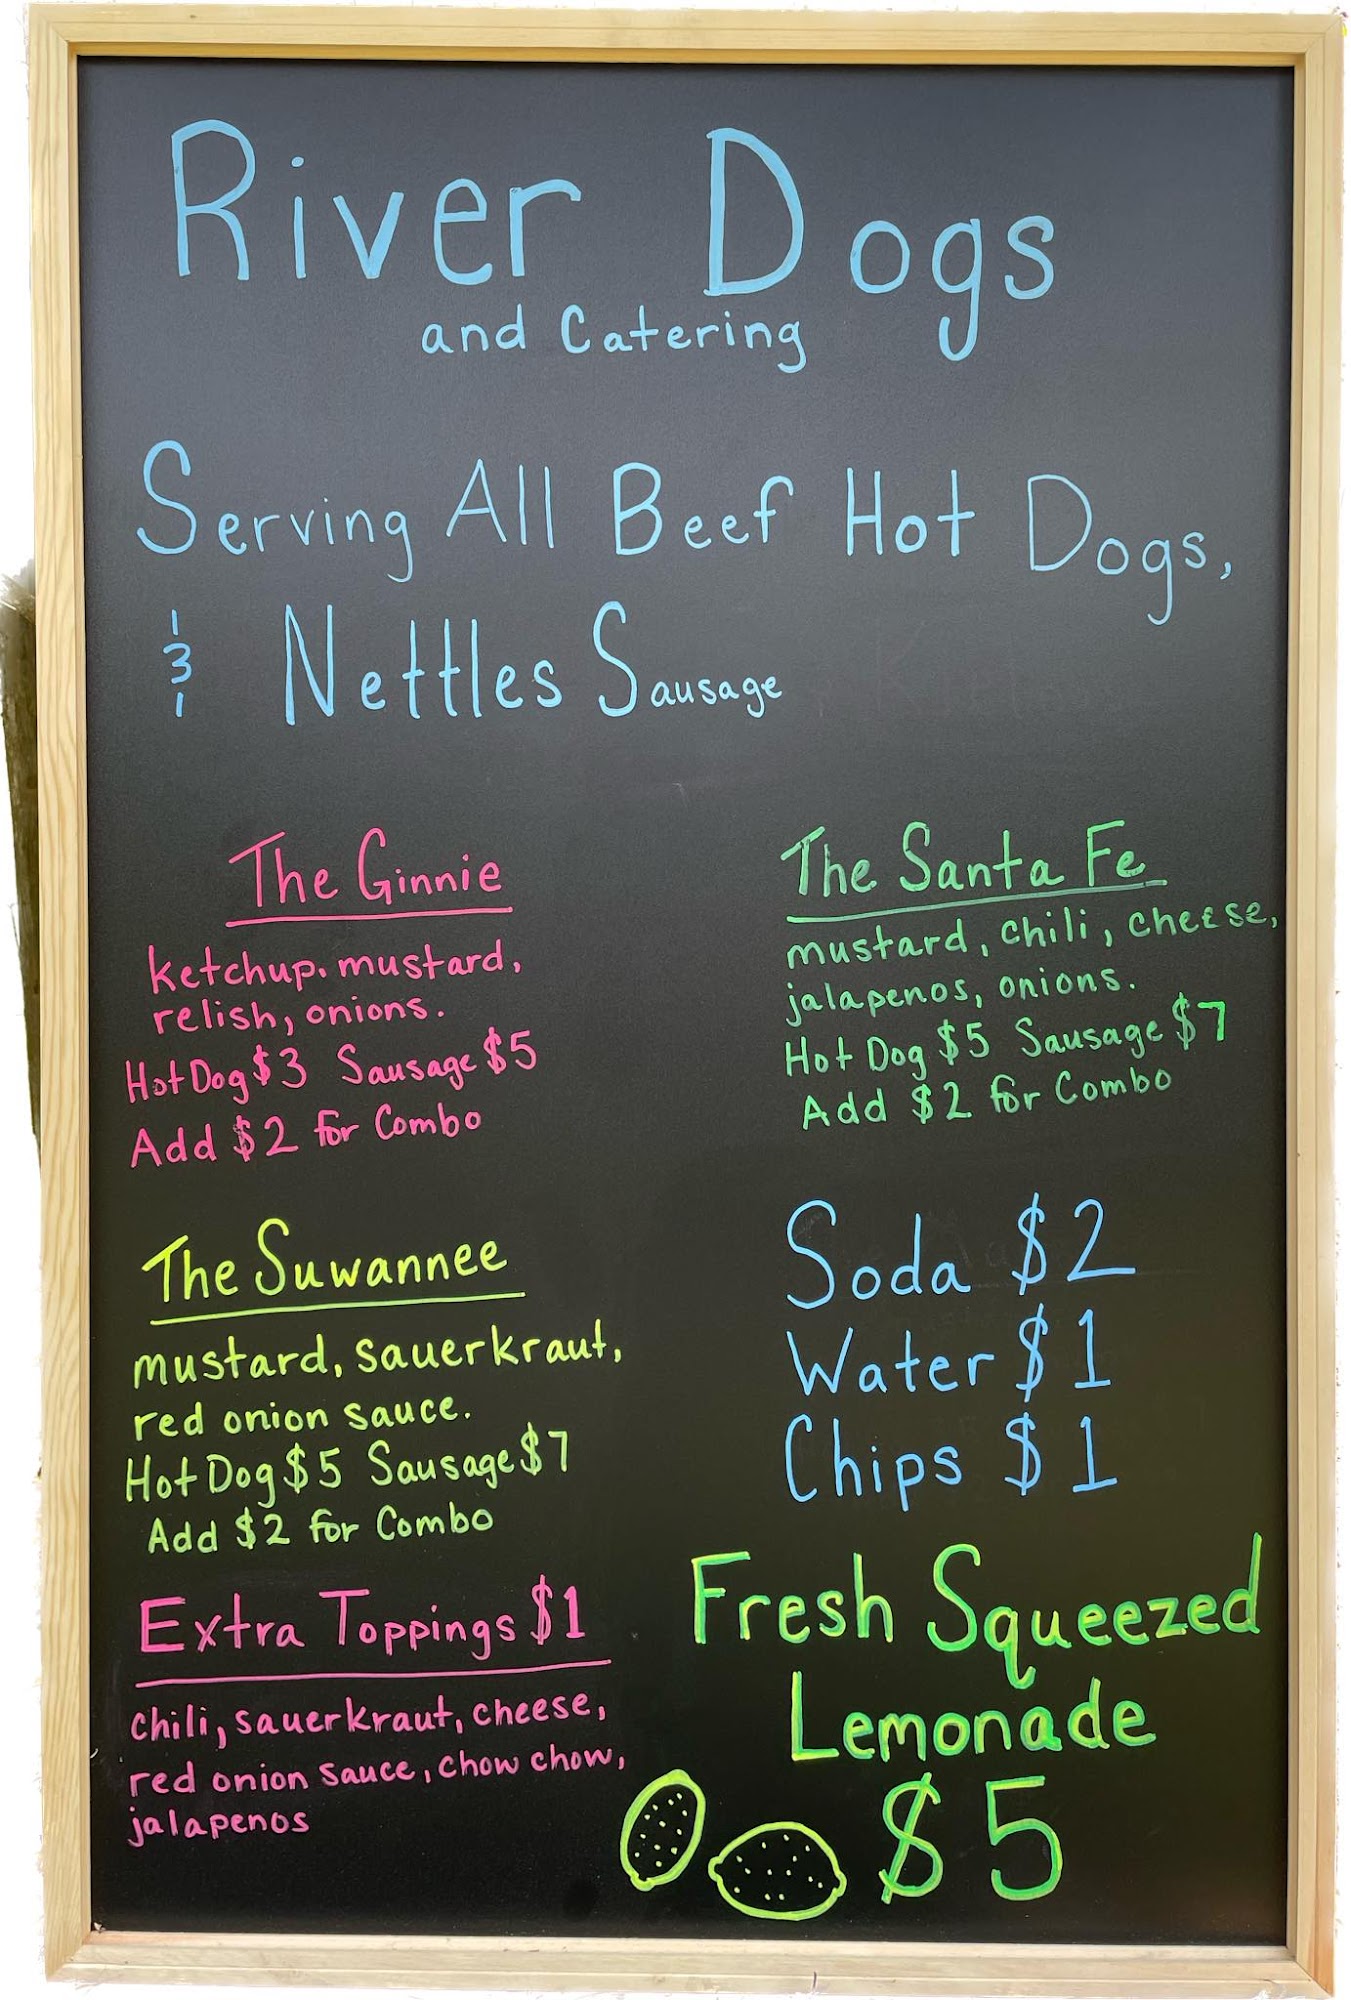 River Dogs
and Catering
Serving All Beef Hot Dogs,
& Nettles Sausage
The Ginnie
ketchup. mustard,
relish, onions.
Hot Dog $3 Sausage $5
Add $2 for Combo
The Santa Fe
mustard, chili, cheese,
jalapenos, onions.
Hot Dog $5 Sausage $7
Add $2 for Combo
The Suwannee
mustard, sauerkraut,
red onion sauce.
Hot Dog $5 Sausage $7
Add $2 for Combo
Soda $2
Water $1
Chips $1
Extra Toppings $1
chili, sauerkraut, cheese,
red onion sauce, chow chow,
jalapenos
Fresh Squeezed
Lemonade
$5